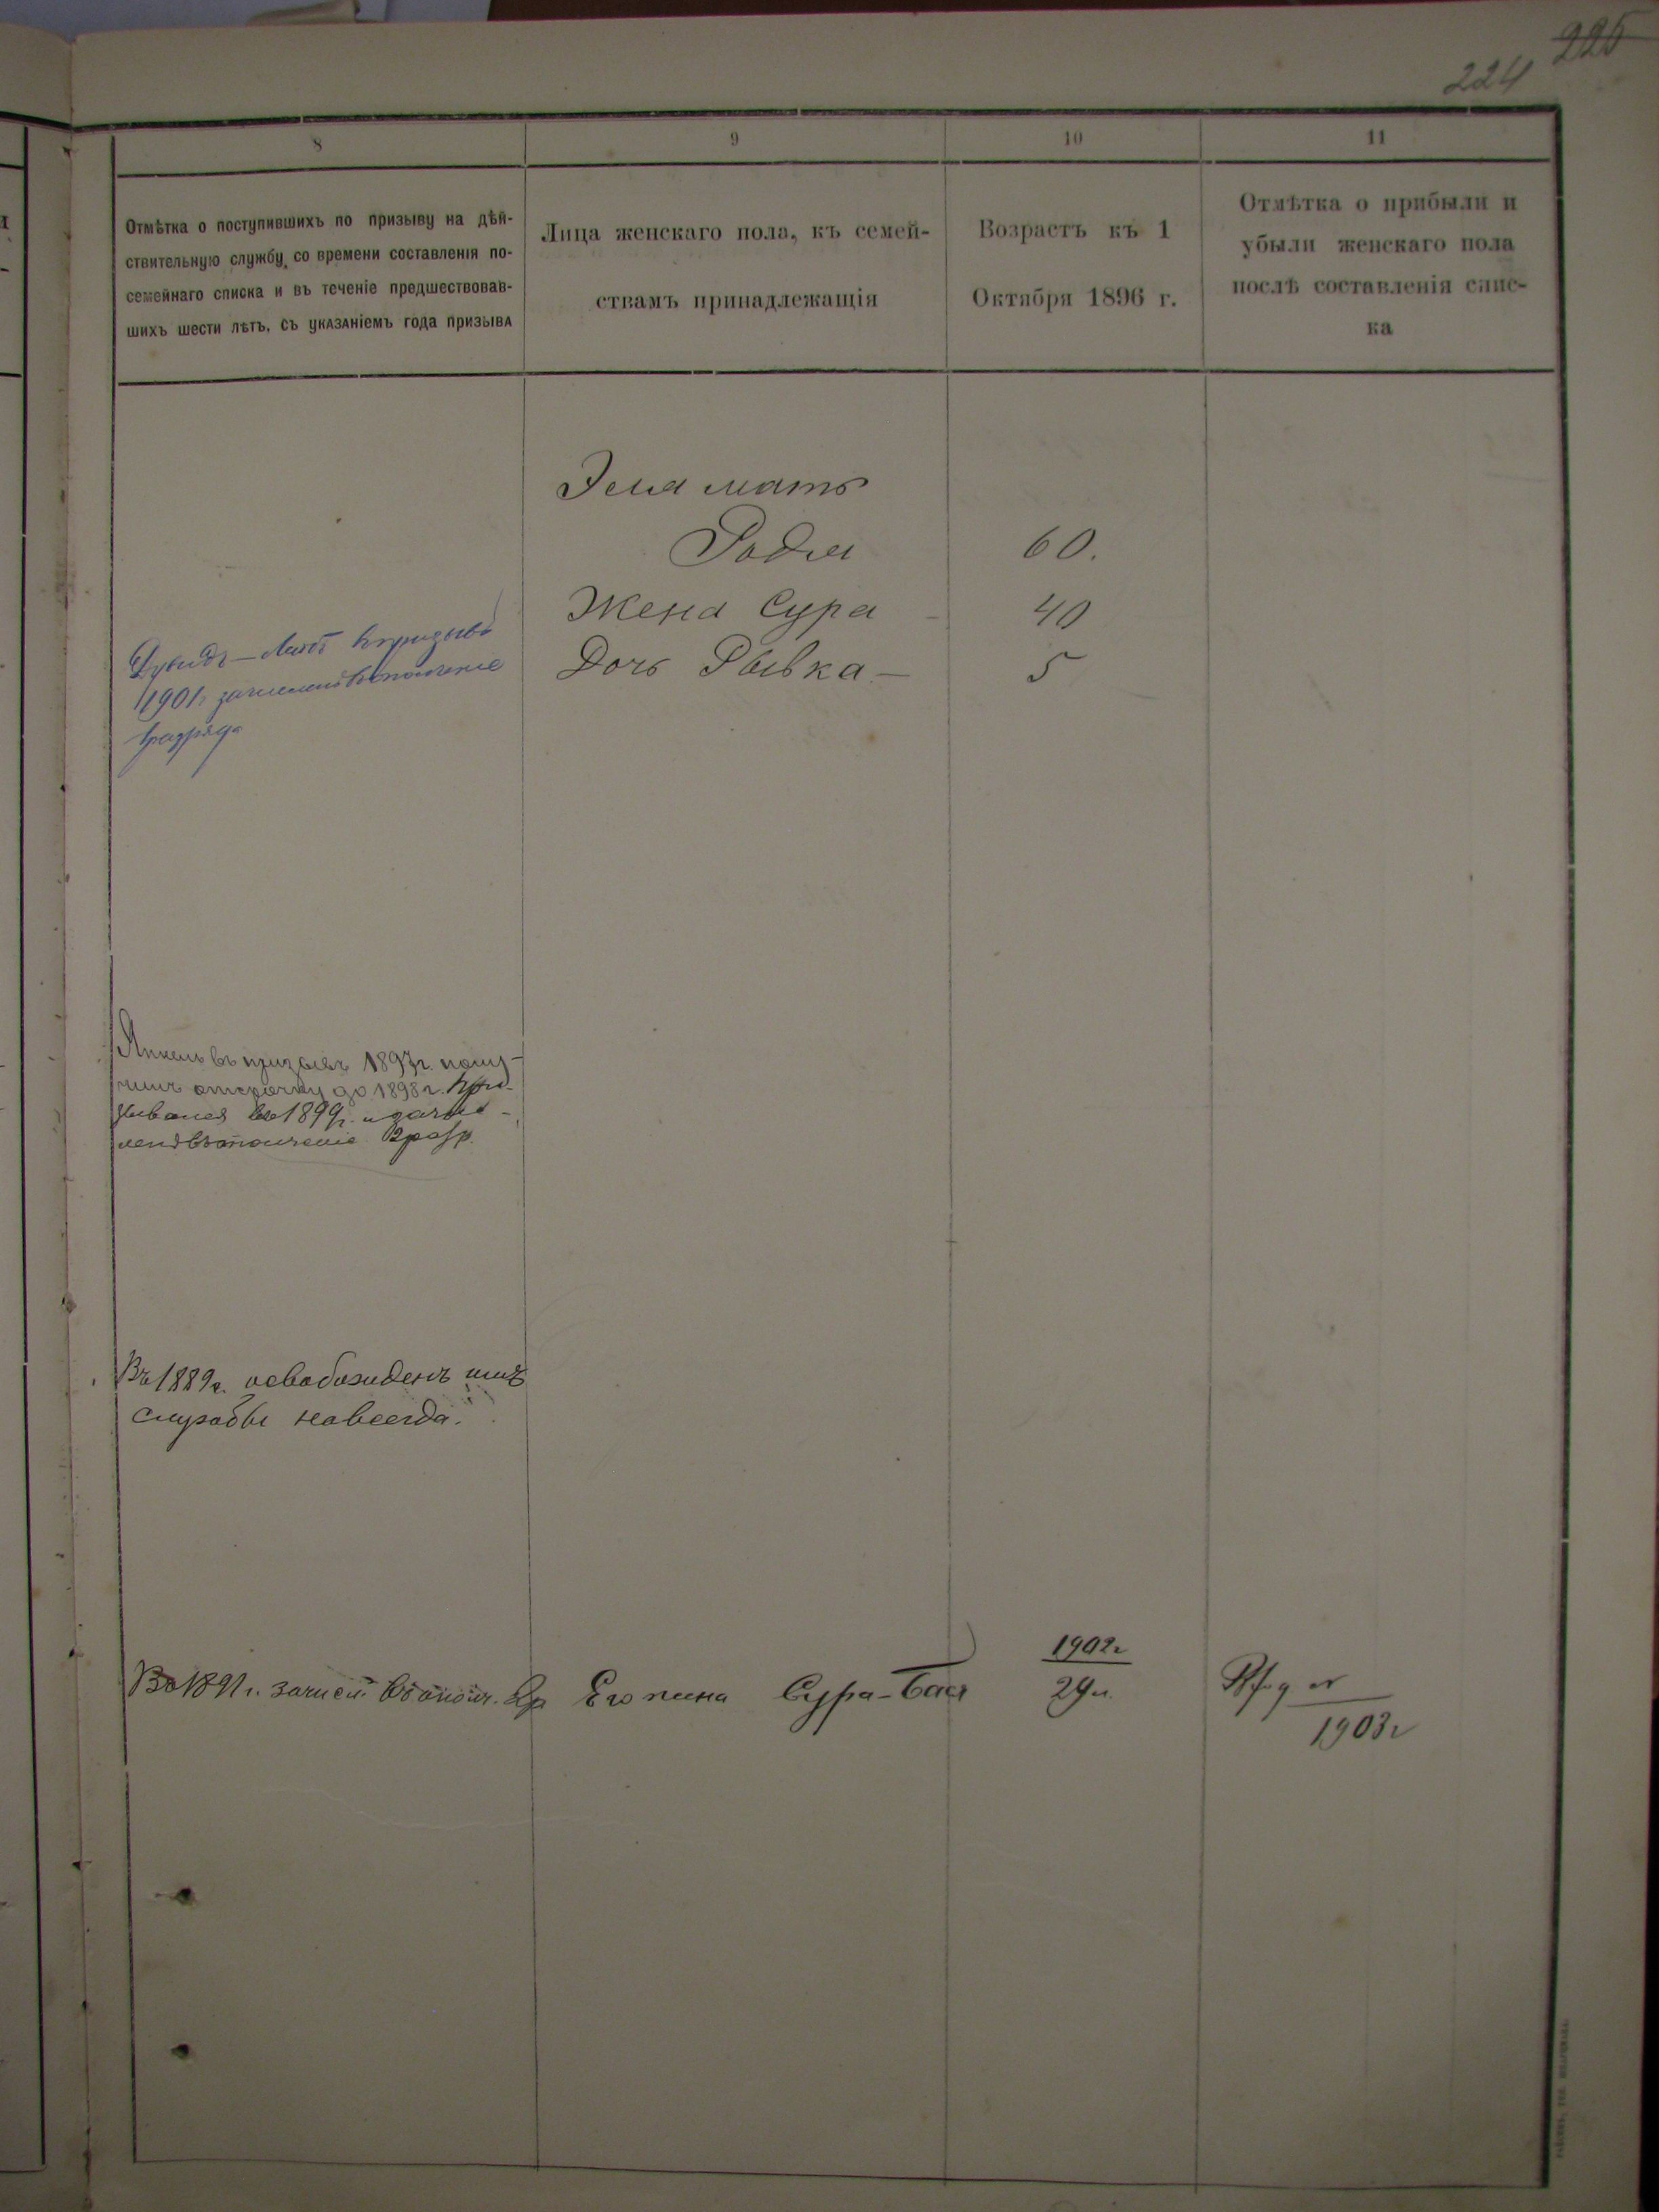 225
224
8
9
10
11
Отмѣтка о поступившихъ по призыву на дѣй-
ствительную службу, со времени составленія по-
семейнаго списка и въ теченіе предшествовав-
шихъ шести лѣтъ, съ указаніемъ года призыва
Лица женскаго пола, къ семей-
ствамъ принадлежащія
Возрастъ къ 1
Октября 1896 г.
Отмѣтка о прибыли и
убыли женскаго пола
послѣ составленія спис-
ка
мать
60.
Жена Сура
40
Дочь Рывка
5
призыв
1901 г. зачислен в ополчение
разряда
въ призывъ 1897 г. полу-
чилъ отсрочку до 1898 г. При-
зывался въ 1899 г. и зачис-
ленъ въ ополчение 2 разр.
Въ 1889 г. освобожденъ отъ
службы навсегда.
Въ 1891 г. зачисл. въ ополч. 2 р
Его жена Сура-Бася
1902 г
29 л.
1903 г